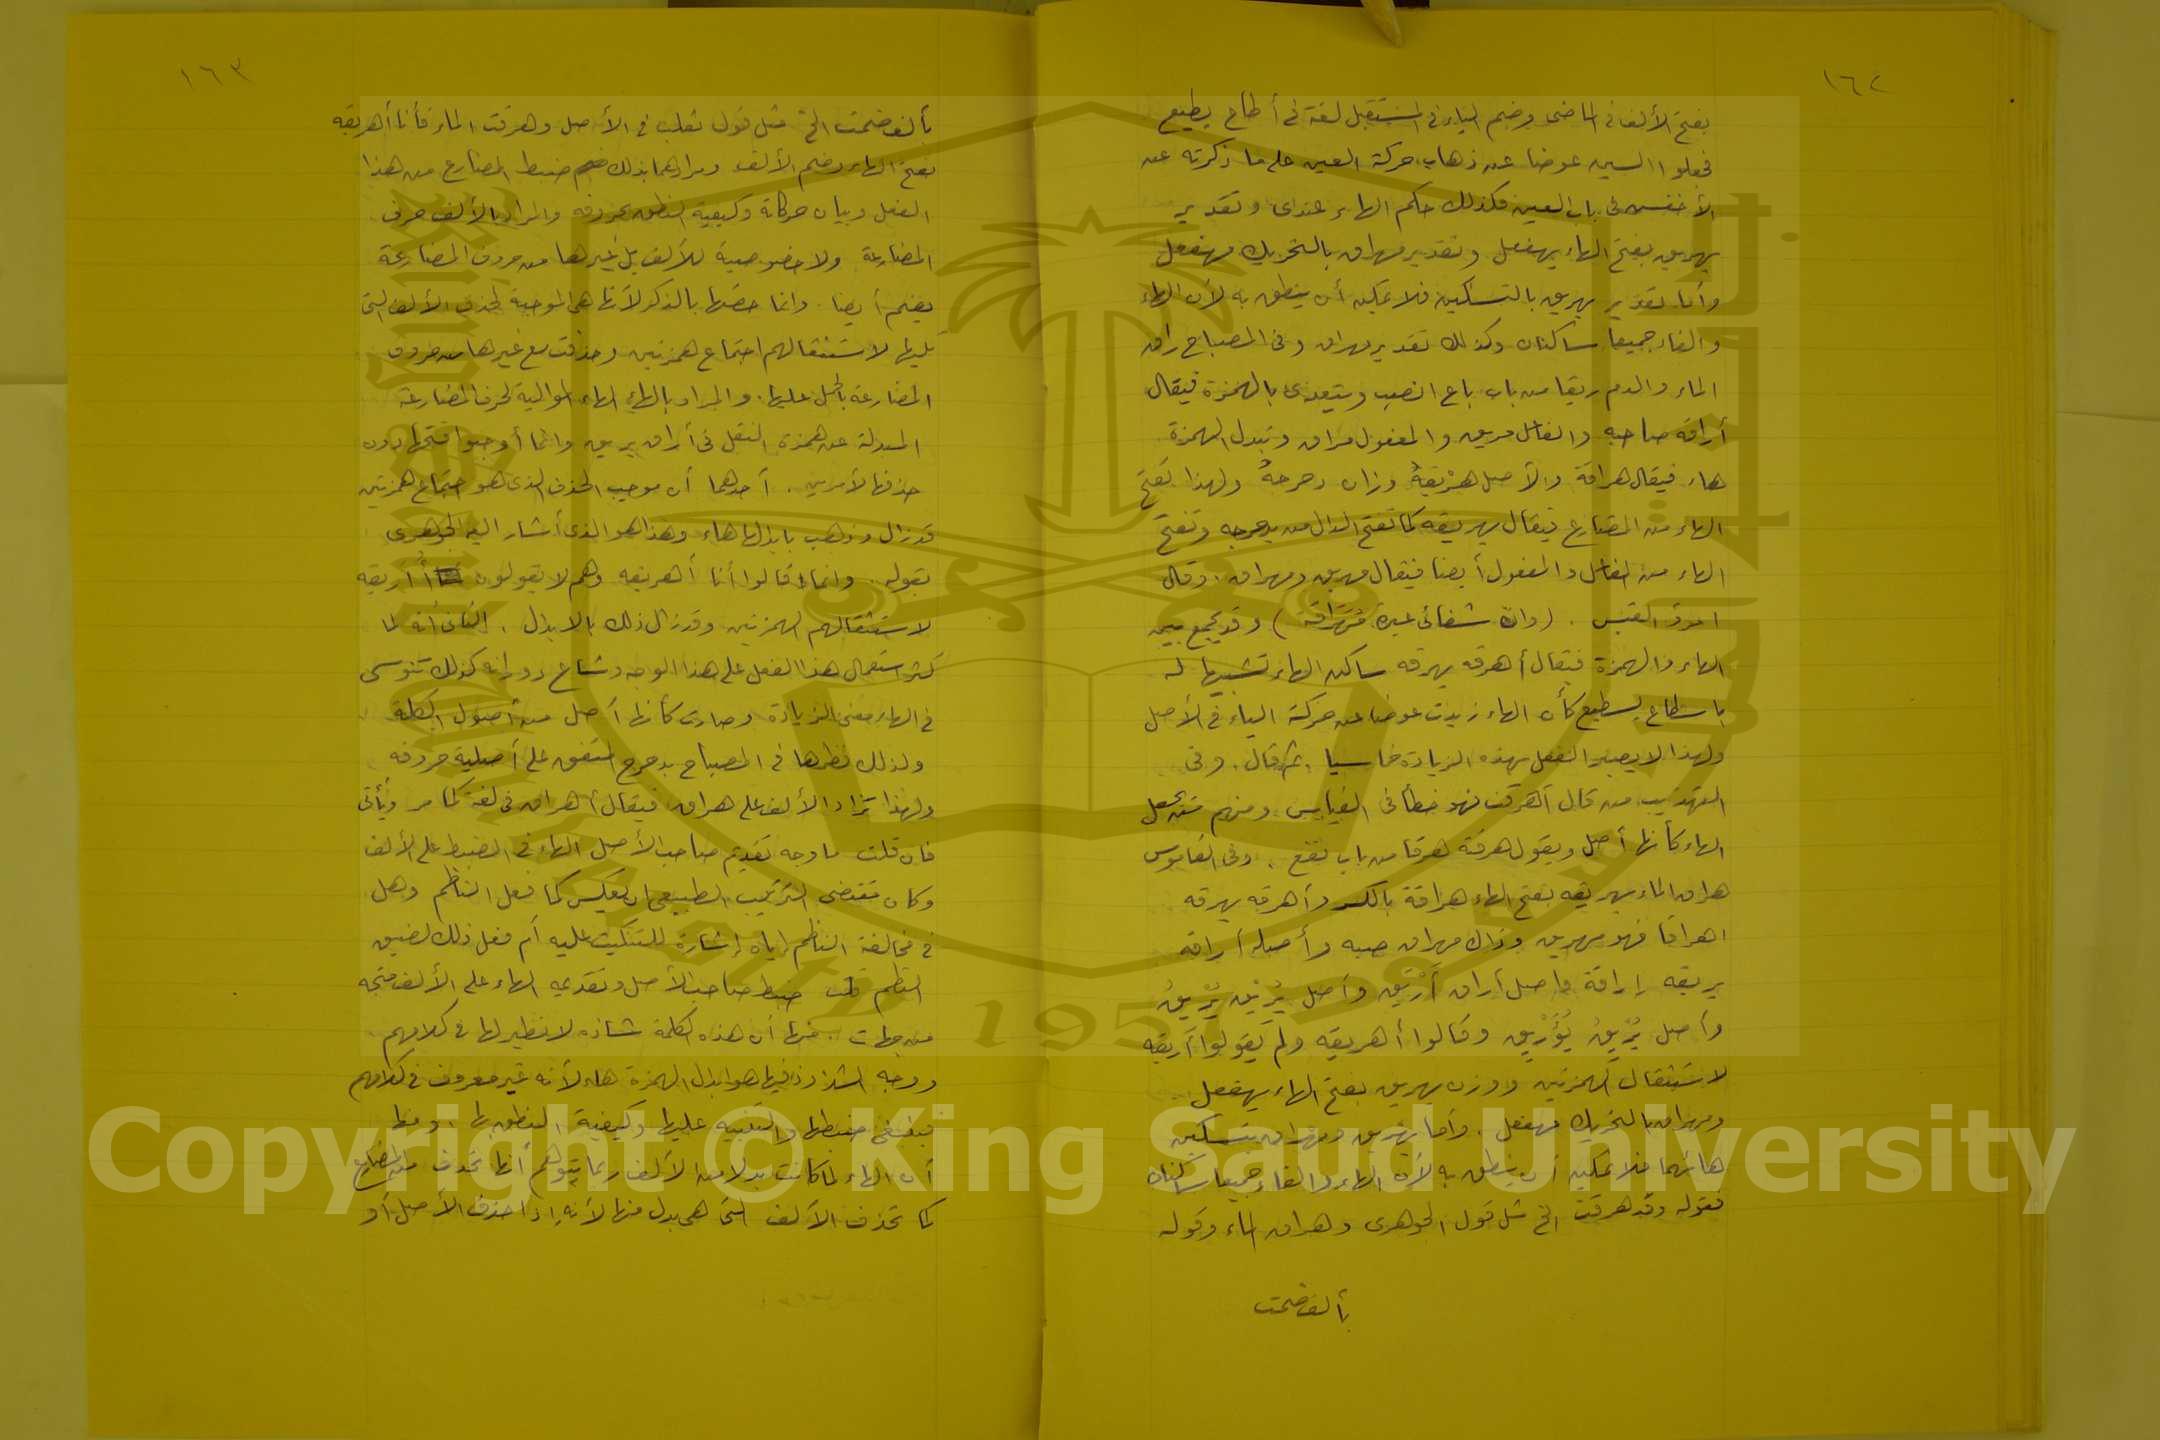 ١٦٢
بفتح الألف في الماضى وضم الياء في المستقبل لغة في أطاع يطيع
فجعلوا السين عوضا عن ذهاب حركة العين على ما ذكرته عن
الأخفش في باب العين فكذلك حكم الهاء عندى وتقدير
يهريق بفتح الهاء يهفعل وتقدير مهراق بالتحريك مهفعل
وأما تقدير يهريق بالتسكين فلا يمكن أن ينطق به لأن الهاء
والفاء جميعا ساكنان وكذلك تقدير مهراق وفى المصباح راق
الماء والدم ريقا من باب باع انصب ويتعدى بالهمزة فيقال
أراقه صاحبه والفاعل مريق والمفعول مراق وتبدل الهمزة
هاء فيقال هراقه والأصل هَرْيَقَهُ وزان دحرجهُ ولهذا تفتح
الهاء من المضارع فيقال يهريقه كما تفتح الدال من يدحرجه وتفتح
الهاء من الفاعل والمفعول أيضا فيقال مهريق ومهراق . وقال
امرؤ القيس . (وان شفائى عبرة مُهَرَاقة) وقد يجمع بين
الهاء والهمزة فيقال أهرقه يهرقه ساكن الهاء تشبيها له
باسطاع يسطيع كأن الهاء زيدت عوضا عن حركة الياء في الأصل
ولهذا لا يصير الفعل بهذه الزيادة خماسيا . ثم قال . وفى
التهذيب من قال أهرقت فهو خطأ في القياس ومنهم من يجعل
الهاء كأنها أصل ويقول هرقته هرقا من باب نفع . وفى القاموس
هراق الماء يهريقه بفتح الهاء هراقة بالكسر وأهرقه يهرقه
اهراقا فهو مهريق وذاك مهراق صبه وأصله أراقه
يريقه إراقة وأصل أراق أَرْيَقَ وأصل يُريق يُرْيِقُ
وأصل يُرْيِقُ يُؤَرْيِق وقالوا أهريقه ولم يقولوا أأريقه
لاستثقال الهمزتين ووزن يهريق بفتح الهاء يهفعل
ومهراق بالتحريك مهفعل . وأما يهريق ومهراق بتسكين
هائهما فلا يمكن أن ينطق به لأن الهاء والفاء جميعا ساكنان
فقوله وقد هرقت الخ مثل قول الجوهرى وهراق الماء وقوله
بألف ضمت
١٦٣
بألف ضمت الخ مثل قول ثعلب في الأصل وهرقت الماء فأنا أهريقه
بفتح الهاء وضم الألف ومرادهما بذلك ضبط المضارع من هذا
الفعل وبيان حركاته وكيفية النطق بحروفه والمراد بالألف حرف
المضارعة ولا خصوصية للألف بل غيرها من حروف المضارعة
يضم أيضا . وانما خصها بالذكر لأنها هي الموجبة لحذف الألف التى
تليها لاستثقالهم اجتماع همزتين وحذفت مع غيرها من حروف
المضارعة بالحمل عليها . والمراد بالهاء الهاء الموالية لحرف المضارعة
المبدلة عن همزة النقل في أراق يريق وانما أوجبوا فتحها دون
حذفها لأمرين . أحدهما أن موجب الحذف الذى هو اجتماع همزتين
قد زال وذهب بابدالها هاء وهذا هو الذى أشار اليه الجوهرى
بقوله . وانما قالوا أنا أهريقه وهم لا يقولون أأريقه
لاستثقالهم الهمزتين وقد زال ذلك بالابدال . الثانى أنه لما
كثر استعمال هذا الفعل على هذا الوجه وشاع دورانه كذلك تنوسى
في الهاء معنى الزيادة وصارت كأنها أصل من أصول الكلمة
ولذلك نظرها في المصباح بدحرج المتفق على أصلية حروفه
ولهذا تزاد الألف على هراق فيقال أهراق في لغة كما مر ويأتى
فان قلت ما وجه تقديم صاحب الأصل الهاء في الضبط على الألف
وكان مقتضى الترتيب الطبيعى ان يعكس كما فعل الناظم وهل
في مخالفة الناظم اياه إشارة للتنكيت عليه أم فعل ذلك لضيق
النظم قلت ضبط صاحب الأصل وتقديمه الهاء على الألف متجه
من جهات . منها أن هذه الكلمة شاذة لا نظير لها في كلامهم
ووجه الشذوذ فيها هو ابدال الهمزة هاء لأنه غير معروف في كلامهم
فينبغى ضبطها والتنبيه عليها وكيفية النطق بها . ومنها
أن الهاء لما كانت بدلا من الألف ربما يتوهم أنها تحذف من المضارع
كما تحذف الألف التى هى بدل منها لأنه إذا حذف الأصل أو
Copyright © King Saud University
1957